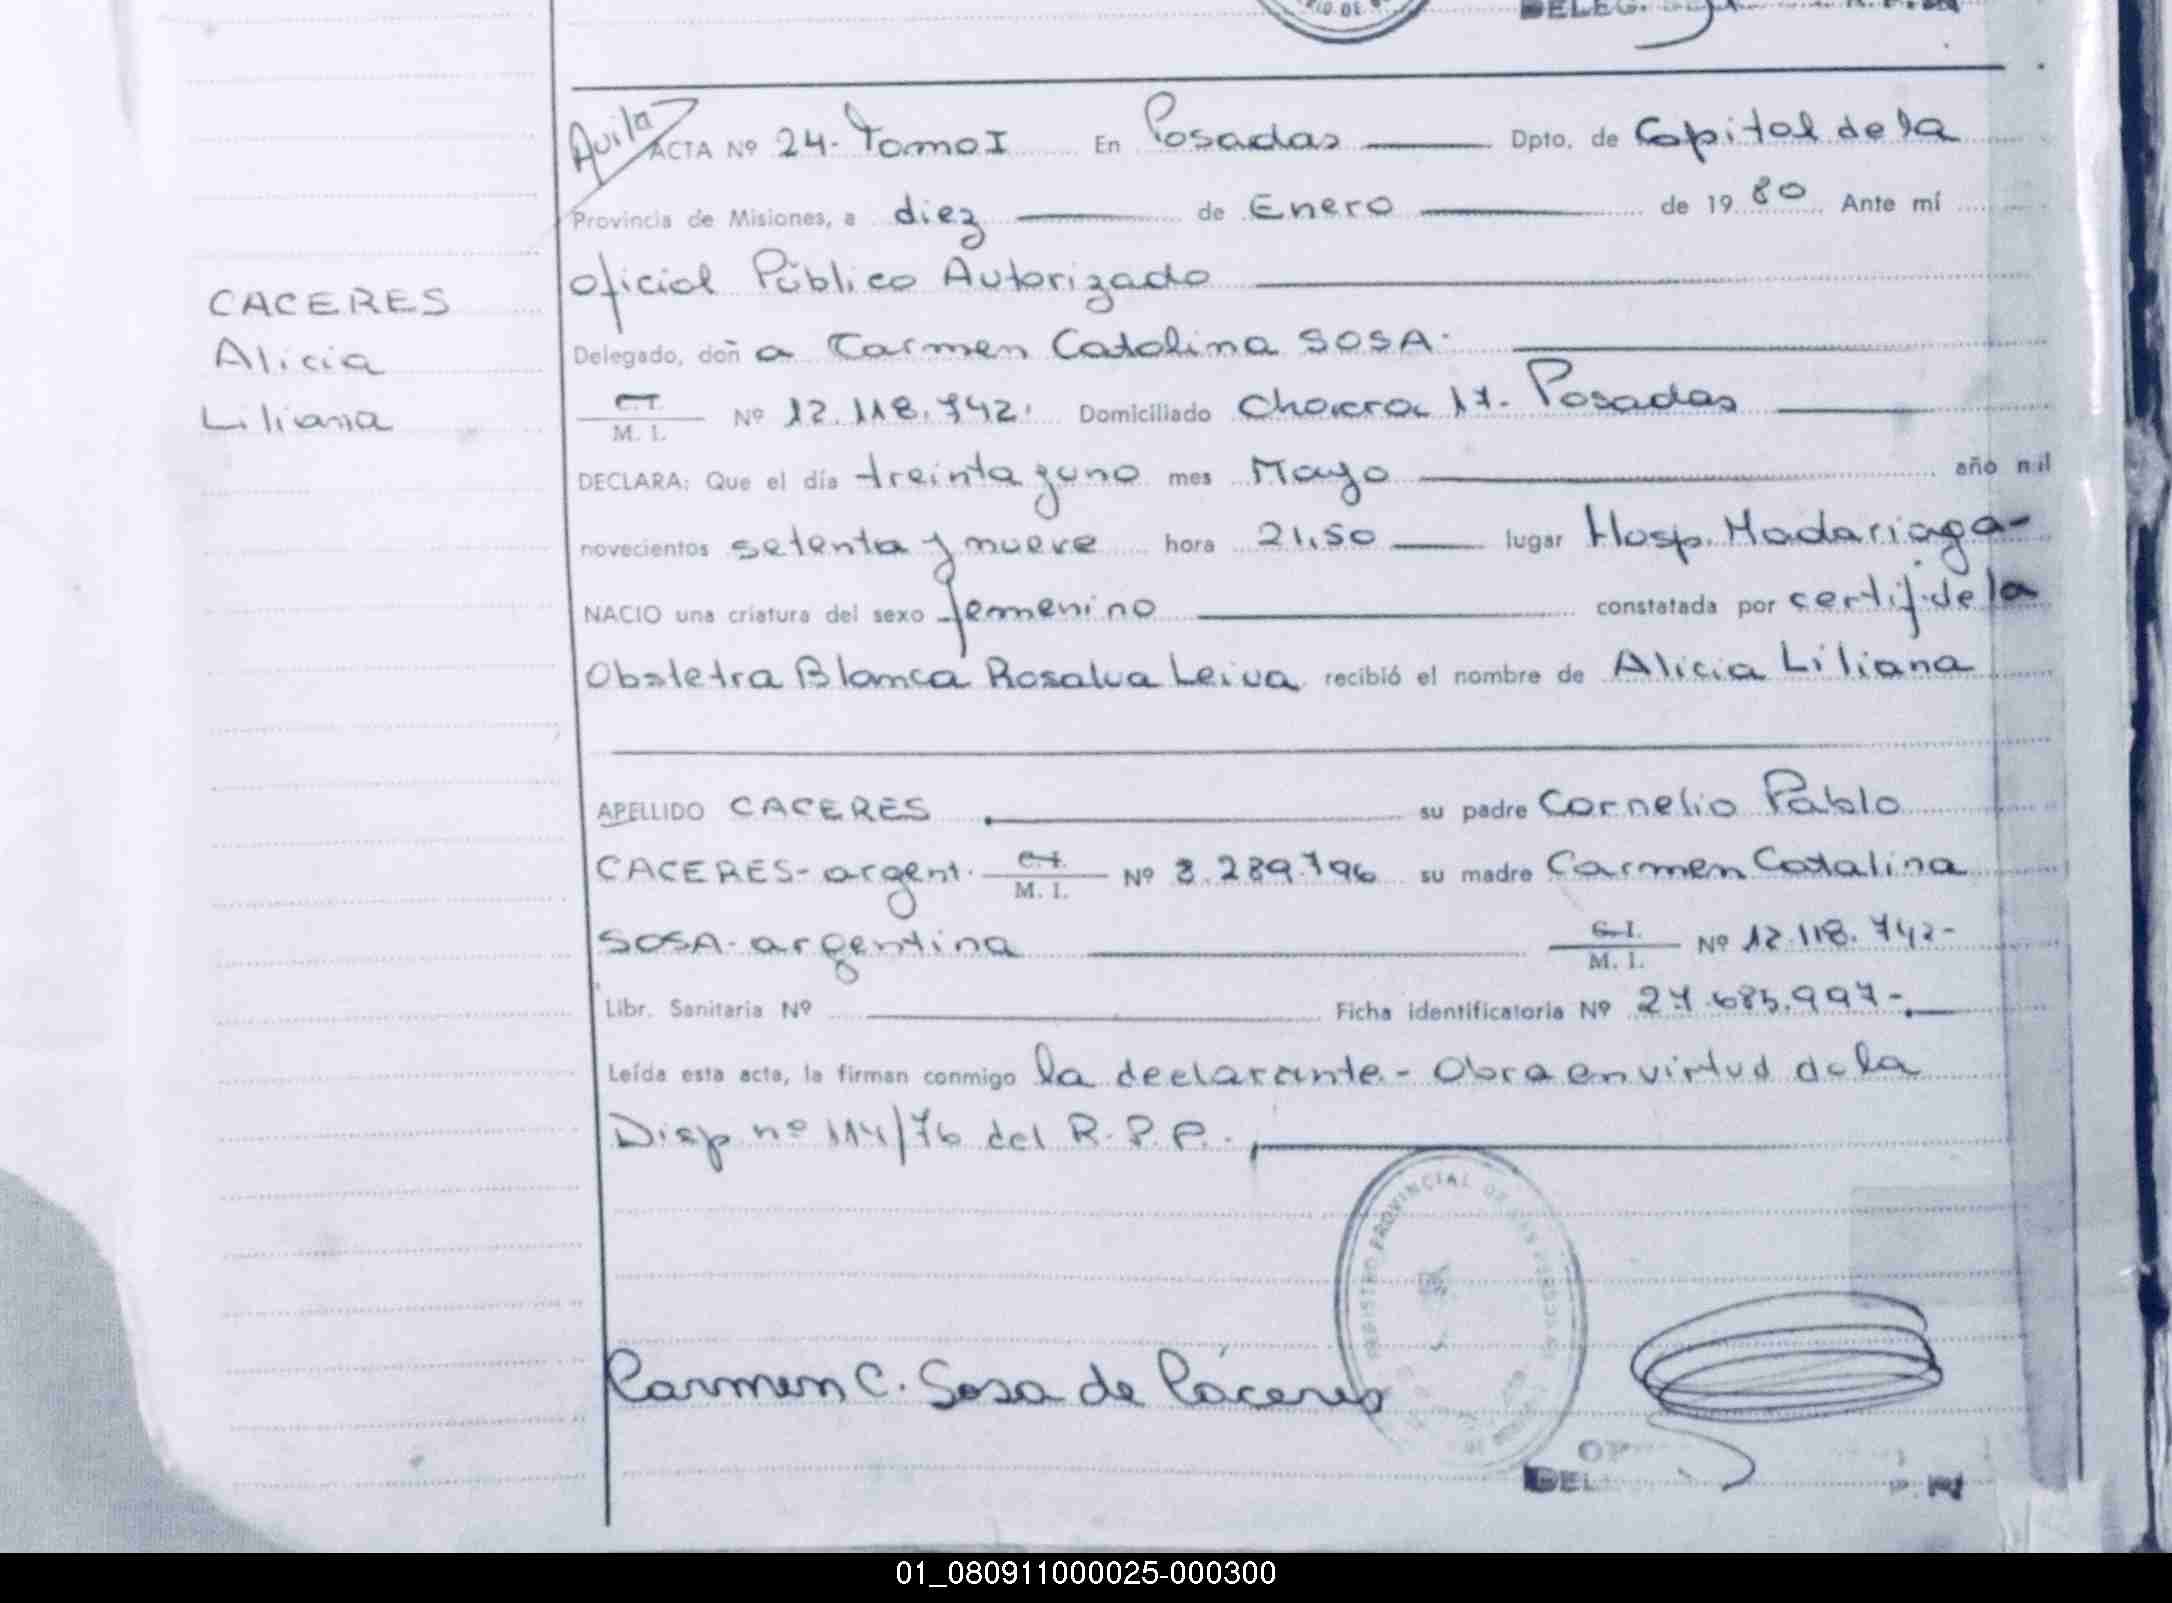 DELEG.
Avila
ACTA Nº 24- Tomo I En Posadas Dpto. de Capital de la
Provincia de Misiones, a diez de Enero de 1980 Ante mí
Oficial Público Autorizado
CACERES
Alicia
Liliana
Delegado, doña Carmen Catalina SOSA.
C.I.
M. I. Nº 12.118.742. Domiciliado Chacra 17- Posadas
DECLARA: Que el día treinta y uno mes Mayo año mil
novecientos setenta y nueve hora 21,50 lugar Hosp. Madariaga-
NACIO una criatura del sexo femenino constatada por certif. de la
Obstetra Blanca Rosalva Leiva recibió el nombre de Alicia Liliana
APELLIDO CACERES su padre Cornelio Pablo
CACERES- argent. C.I.
M. I. Nº 8.289.796 su madre Carmen Catalina
SOSA- argentina C.I.
M. I. Nº 12.118.742-
Libr. Sanitaria Nº Ficha identificatoria Nº 27.685.997-
Leída esta acta, la firman conmigo la declarante.- Obra en virtud de la
Disp nº 114/76 del R.P.P.
REGISTRO PROVINCIAL DE LAS PERSONAS
Carmen C. Sosa de Cáceres
DEL
01_080911000025-000300